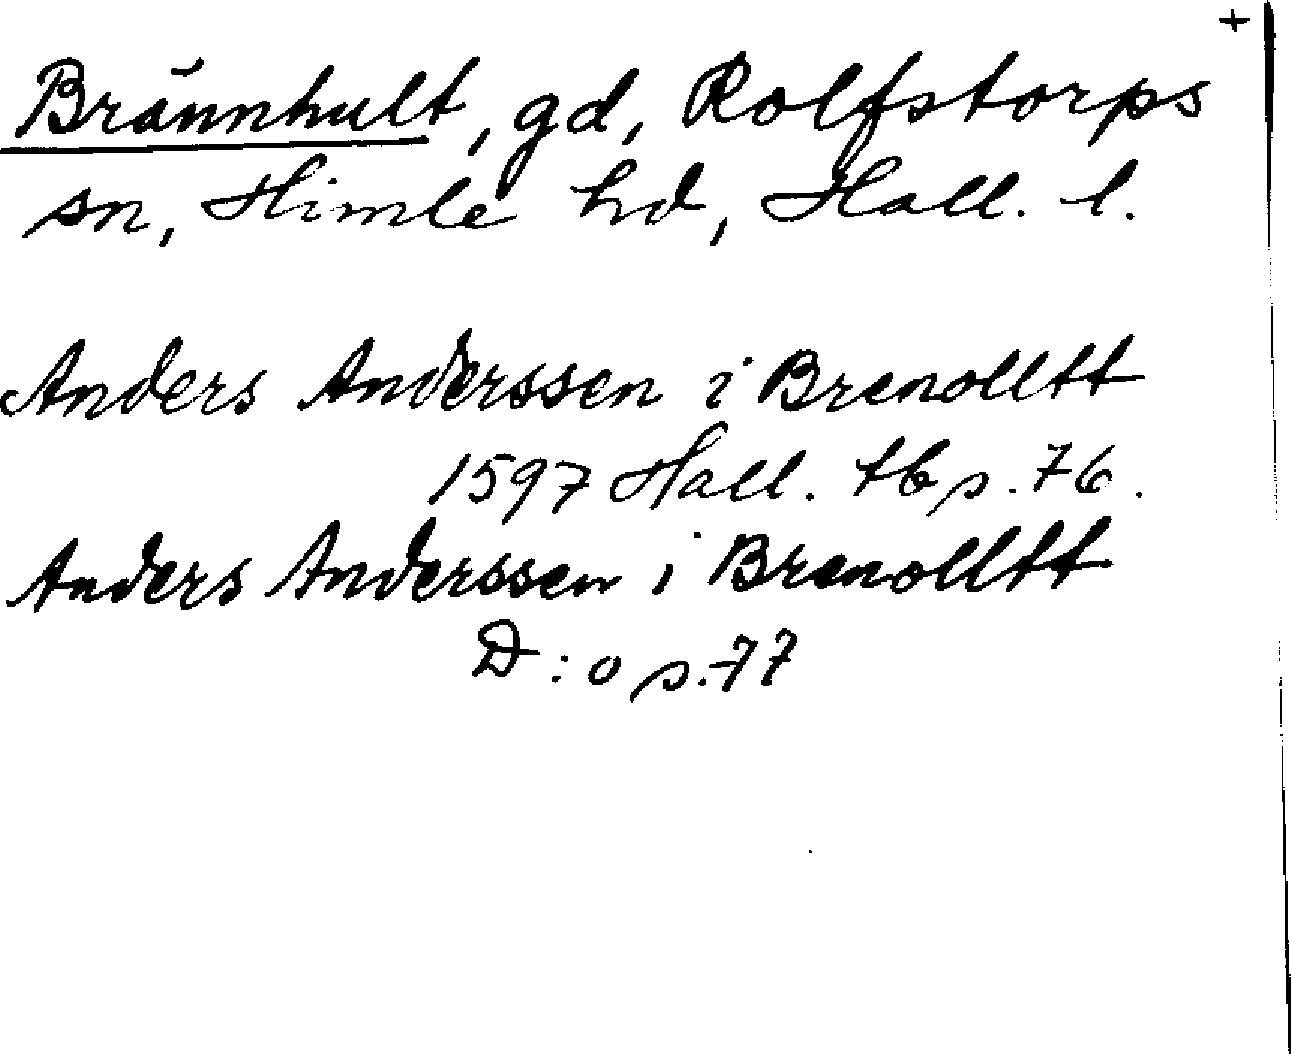 +
Brännhult, gd, Rolfstorps
sn, Himle hd, Hall. l.
Anders Anderssen i Brenolltt
1597 Hall. tb s. 76.
Anders Anderssen i Brenolltt
D:o s. 77